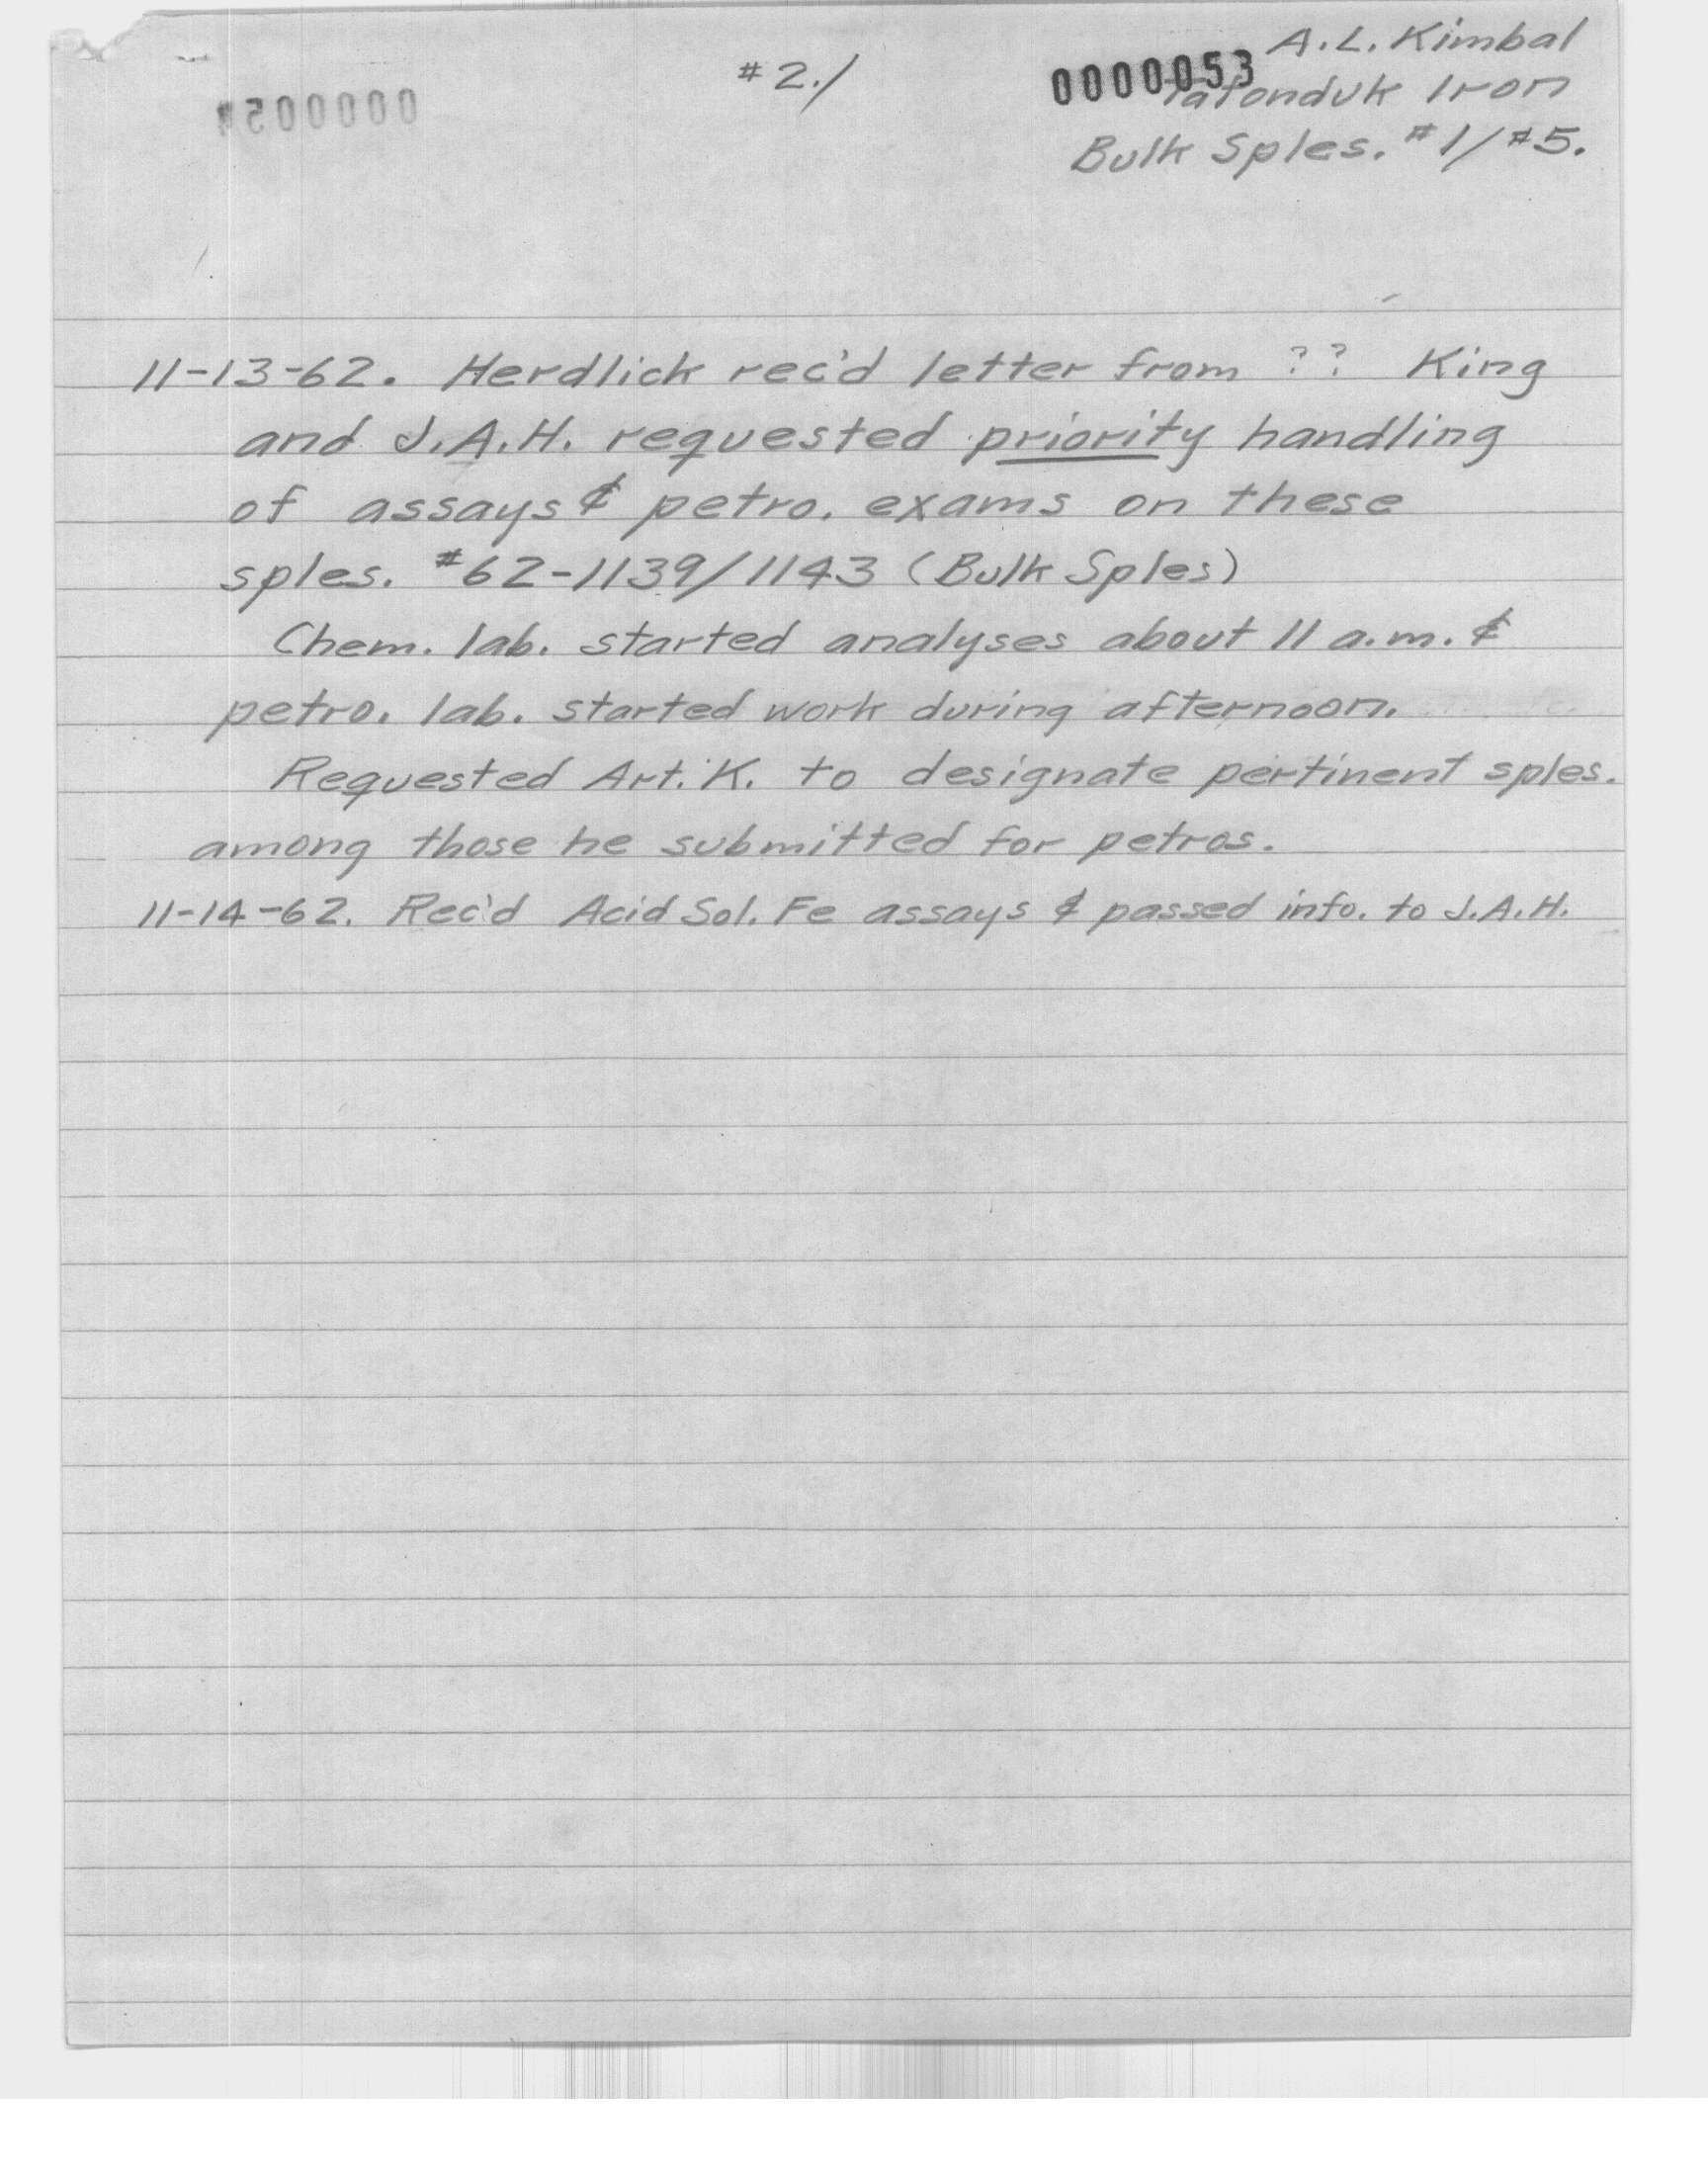 A.L. Kimbal
#2./
0000053
Tatonduk Iron
0000054
Bulk Sples. #1/#5.
11-13-62. Herdlick rec'd letter from ?? King
and J.A.H. requested priority handling
of assays & petro. exams on these
sples. #62-1139/1143 (Bulk Sples)
Chem. lab. started analyses about 11 a.m. &
petro. lab. started work during afternoon.
Requested Art. K. to designate pertinent sples.
among those he submitted for petros.
11-14-62. Rec'd Acid Sol. Fe assays & passed info. to J.A.H.